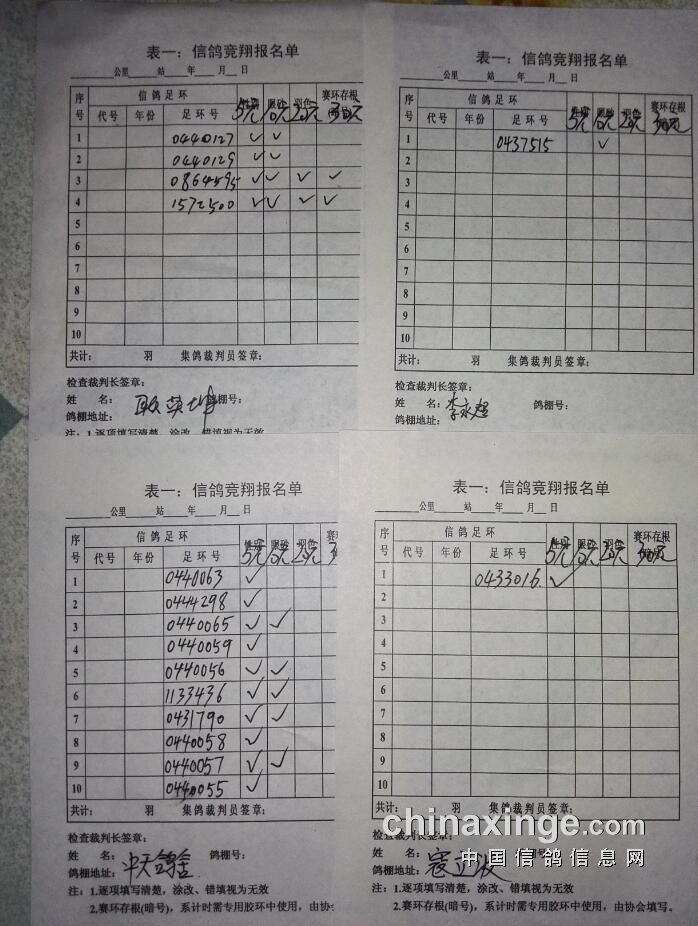 表一：信鸽竞翔报名单
公里 站 年 月 日
序号 信鸽足环 赛环存根
代号 年份 足环号 5元 10元 20元
1 0440127 ✓ ✓
2 0440129 ✓ ✓
3 0864595 ✓ ✓ ✓ ✓
4 1572500 ✓ ✓ ✓ ✓
5
6
7
8
9
10
共计： 羽 集鸽裁判员签章：
检查裁判长签章：
姓 名： 鸽棚号：
鸽棚地址：
注：1.逐项填写清楚，涂改、错填视为无效
表一：信鸽竞翔报名单
公里 站 年 月 日
序号 信鸽足环 赛环存根
代号 年份 足环号 5元 10元 20元
1 0437515 ✓
2
3
4
5
6
7
8
9
10
共计： 羽 集鸽裁判员签章：
检查裁判长签章：
姓 名：李永超 鸽棚号：
鸽棚地址：
表一：信鸽竞翔报名单
公里 站 年 月 日
序号 信鸽足环 赛环存根
代号 年份 足环号 5元 10元 20元
1 0440063 ✓
2 0444298 ✓
3 0440065 ✓ ✓
4 0440059 ✓
5 0440056 ✓ ✓
6 1133436 ✓ ✓
7 0431790 ✓ ✓
8 0440058 ✓
9 0440057 ✓ ✓
10 0440055 ✓
共计： 羽 集鸽裁判员签章：
检查裁判长签章：
姓 名： 鸽棚号：
鸽棚地址：中天鸽舍
注：1.逐项填写清楚，涂改、错填视为无效
2.赛环存根(暗号)，系计时需专用胶环中使用，由协
表一：信鸽竞翔报名单
公里 站 年 月 日
序号 信鸽足环 赛环存根
代号 年份 足环号 5元 10元 20元
1 0433016 ✓
2
3
4
5
6
7
8
9
10
共计： 羽 集鸽裁判员签章：
检查裁判长签章：
姓 名： 鸽棚号：
鸽棚地址：
注：1.逐项填写清楚，涂改、错填视为无效
2.赛环存根(暗号)，系计时需专用胶环中使用，由协会填写。
chinaxinge.com
中国信鸽信息网